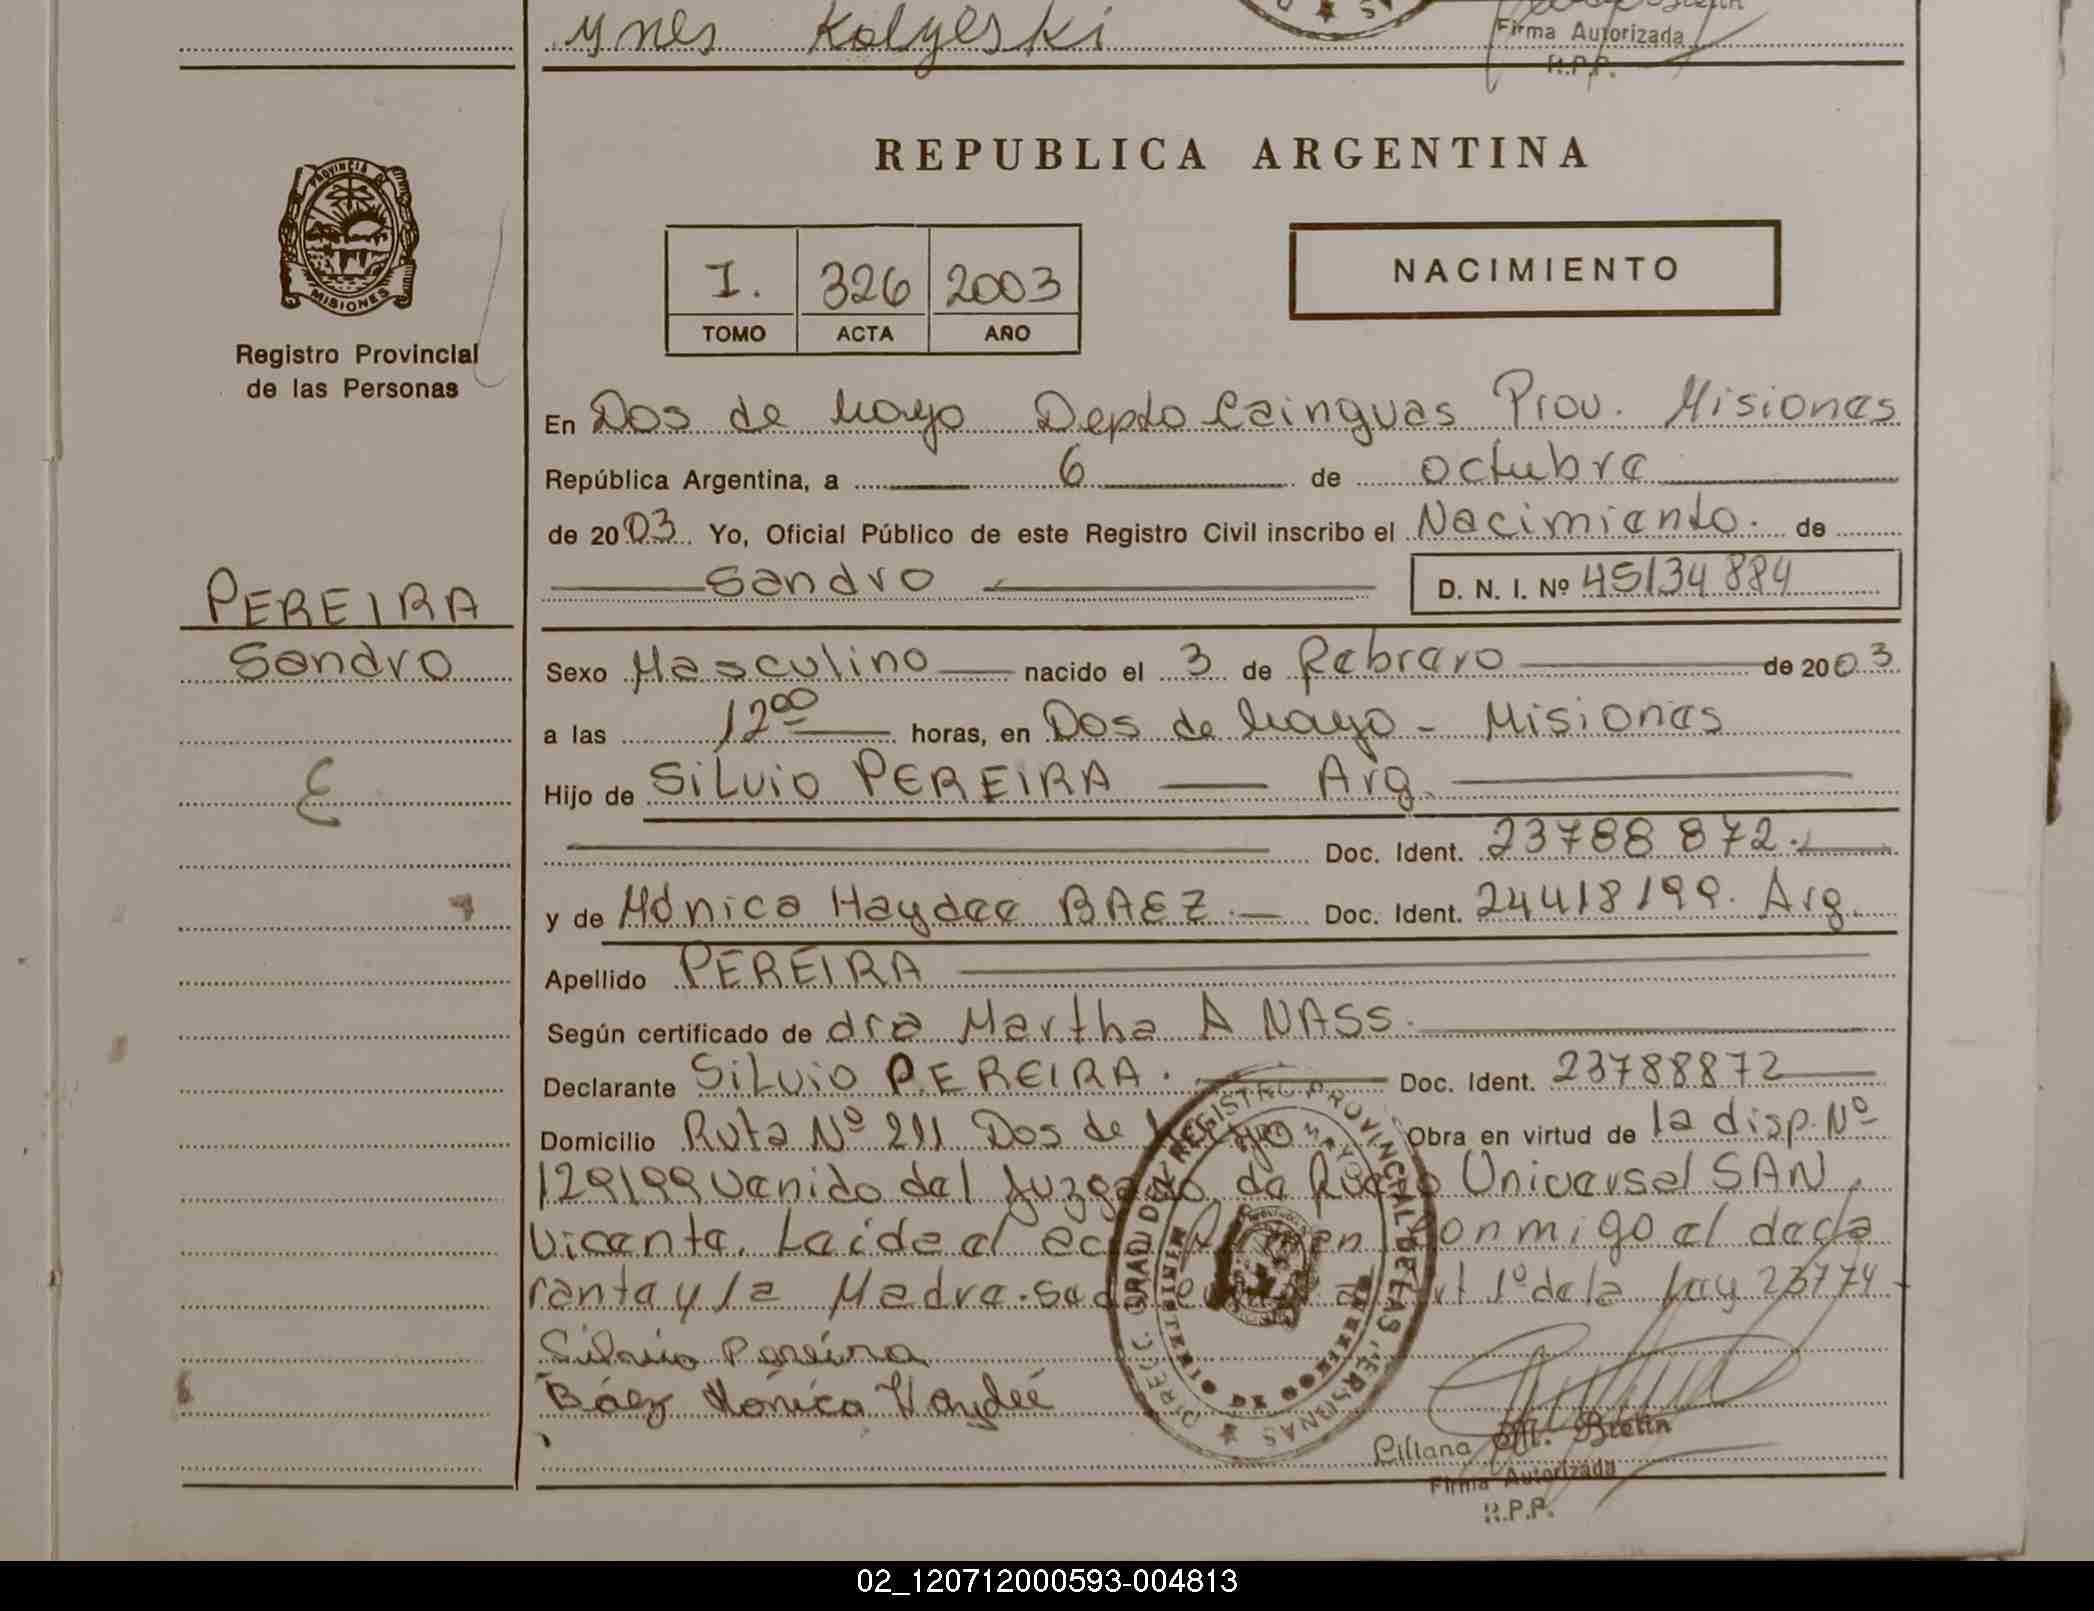 Ynes Kolyeski
Firma Autorizada
R.P.P.
REPUBLICA ARGENTINA
PROVINCIA DE
MISIONES
Registro Provincial
de las Personas
I. 326 2003
TOMO ACTA AÑO
NACIMIENTO
En Dos de Mayo Depto Cainguas Prov. Misiones
República Argentina, a 6 de octubre
de 2003 Yo, Oficial Público de este Registro Civil inscribo el Nacimiento. de
Sandro D. N. I. Nº 45134884
PEREIRA
Sandro
Sexo Masculino nacido el 3 de Febrero de 2003
a las 12 00 horas, en Dos de Mayo - Misiones
Hijo de Silvio PEREIRA Arg.
Doc. Ident. 23788872.
y de Mónica Haydee BAEZ. Doc. Ident. 24418199. Arg.
Apellido PEREIRA
Según certificado de dra Martha A NASS.
Declarante Silvio PEREIRA. Doc. Ident. 23788872
Domicilio Ruta Nº 211 Dos de Mayo Obra en virtud de la disp. Nº
129/99 venido del Juzgado de Universal SAN
Vicente. Leída el firmen conmigo el decla
rante y la Madre. 1º de la Ley 23774
Silvio Pereira
Báez Mónica Haydeé
DIRECC. GRAL DEL REGISTRO PROVINCIAL DE LAS PERSONAS
Liliana M. Bretin
Firma Autorizada
R.P.P.
02_120712000593-004813